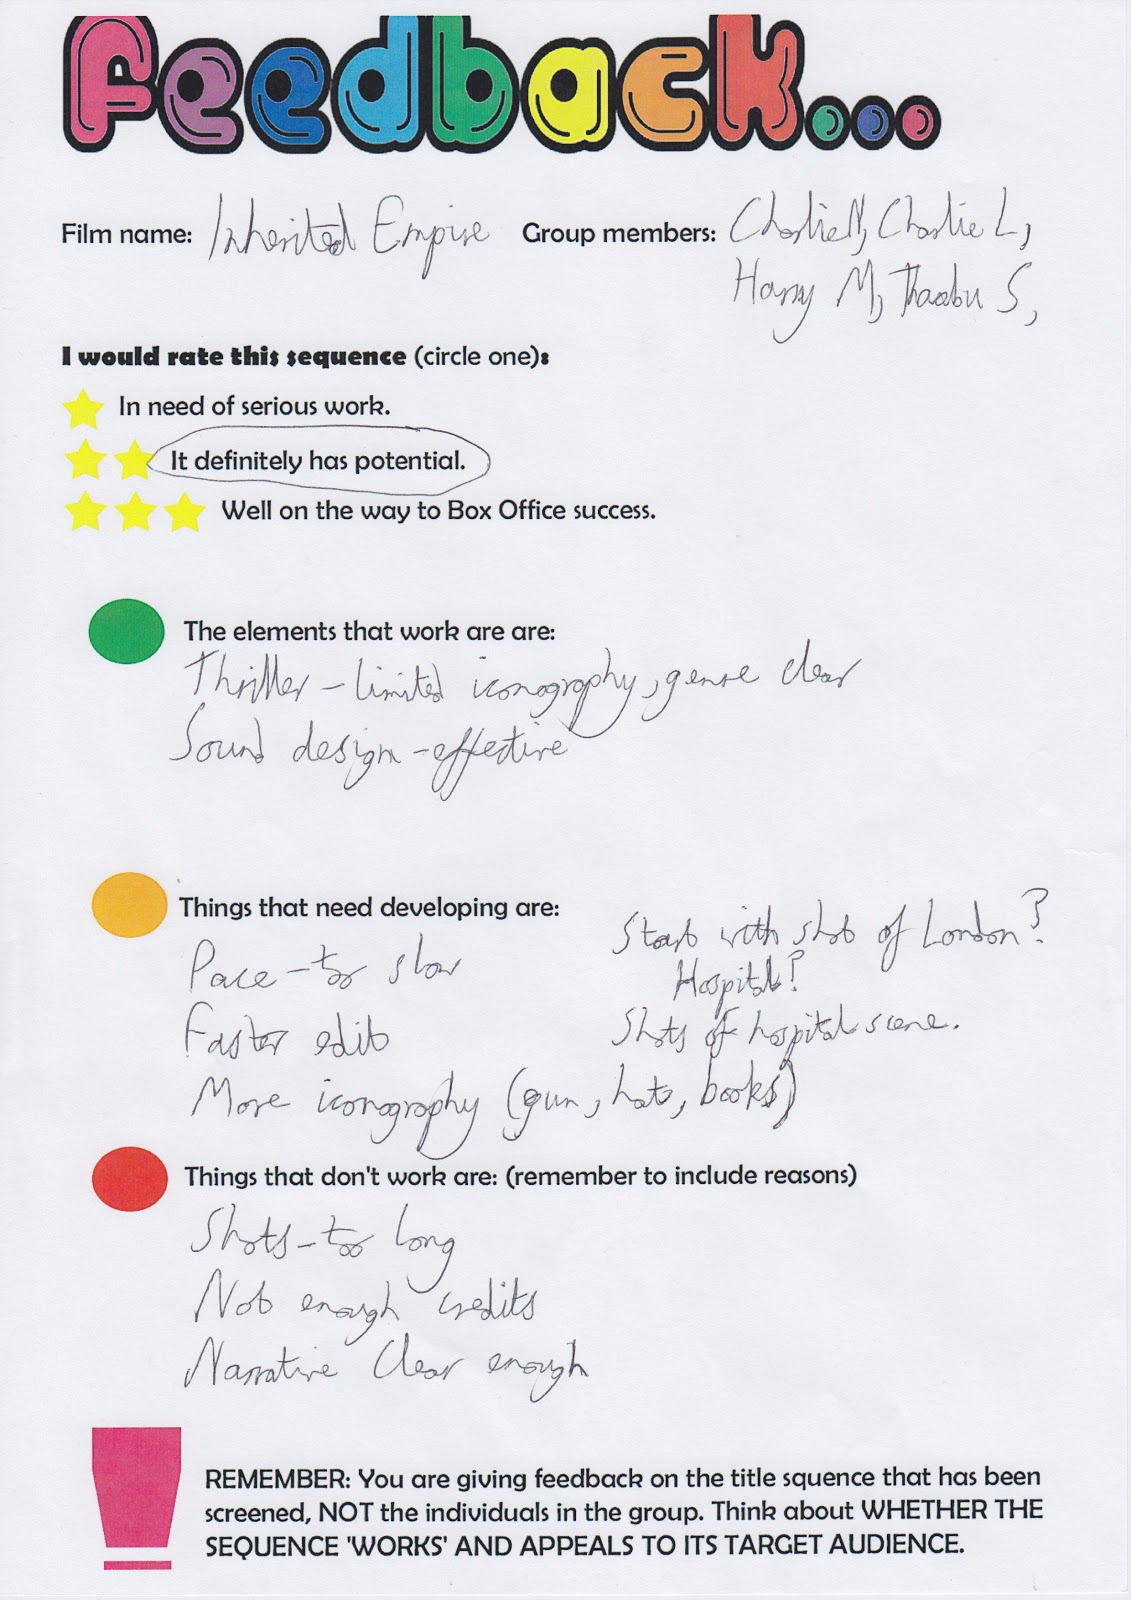 Feedback...
Film name: Inherited Empire Group members: Charlie N, Charlie L,
Harry M, Thaabu S,
I would rate this sequence (circle one):
In need of serious work.
It definitely has potential.
Well on the way to Box Office success.
The elements that work are are:
Thriller - limited iconography, genre clear
Sound design - effective
Things that need developing are:
Pace - too slow
Faster edit
More iconography (gun, hats, books)
Start with shot of London?
Hospital?
Shots of hospital scene.
Things that don't work are: (remember to include reasons)
Shots - too long
Not enough credits
Narrative clear enough
REMEMBER: You are giving feedback on the title squence that has been
screened, NOT the individuals in the group. Think about WHETHER THE
SEQUENCE 'WORKS' AND APPEALS TO ITS TARGET AUDIENCE.